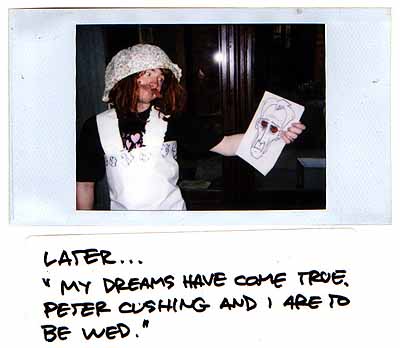 LATER...
"MY DREAMS HAVE COME TRUE.
PETER CUSHING AND I ARE TO
BE WED."